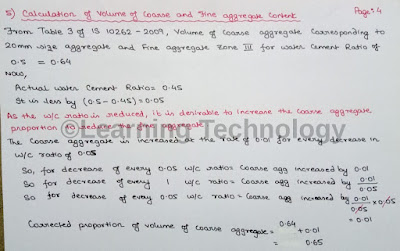 5) Calculation of Volume of Coarse and Fine aggregate Content Page: 4
From Table 3 of IS 10262 - 2009, Volume of coarse aggregate corresponding to
20mm size aggregate and Fine aggregate Zone III for water cement Ratio of
0.5 = 0.64
Now,
Actual water Cement Ratio = 0.45
It is less by (0.5 - 0.45) = 0.05
As the w/c ratio is reduced, it is desirable to increase the coarse aggregate
proportion to reduce the fine aggregate.
©Learning Technology
The coarse aggregate is increased at the rate of 0.01 for every decrease in
w/c ratio of 0.05
So, for decrease of every 0.05 w/c ratio = Coarse agg increased by 0.01
So for decrease of every 1 w/c ratio = Coarse agg increased by 0.01/0.05
So for decrease of every 0.05 w/c ratio = Coarse agg increased by 0.01/0.05 x 0.05
= 0.01
Corrected proportion of volume of coarse aggregate = 0.64 + 0.01
= 0.65